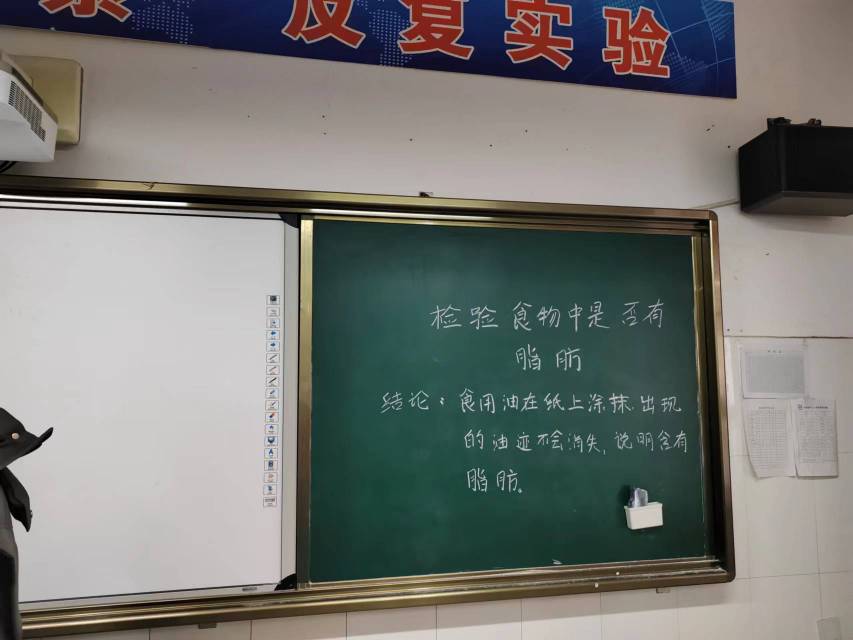 反复实验
检验食物中是否有
脂肪
结论：食用油在纸上涂抹.出现
的油迹不会消失,说明含有
脂肪.